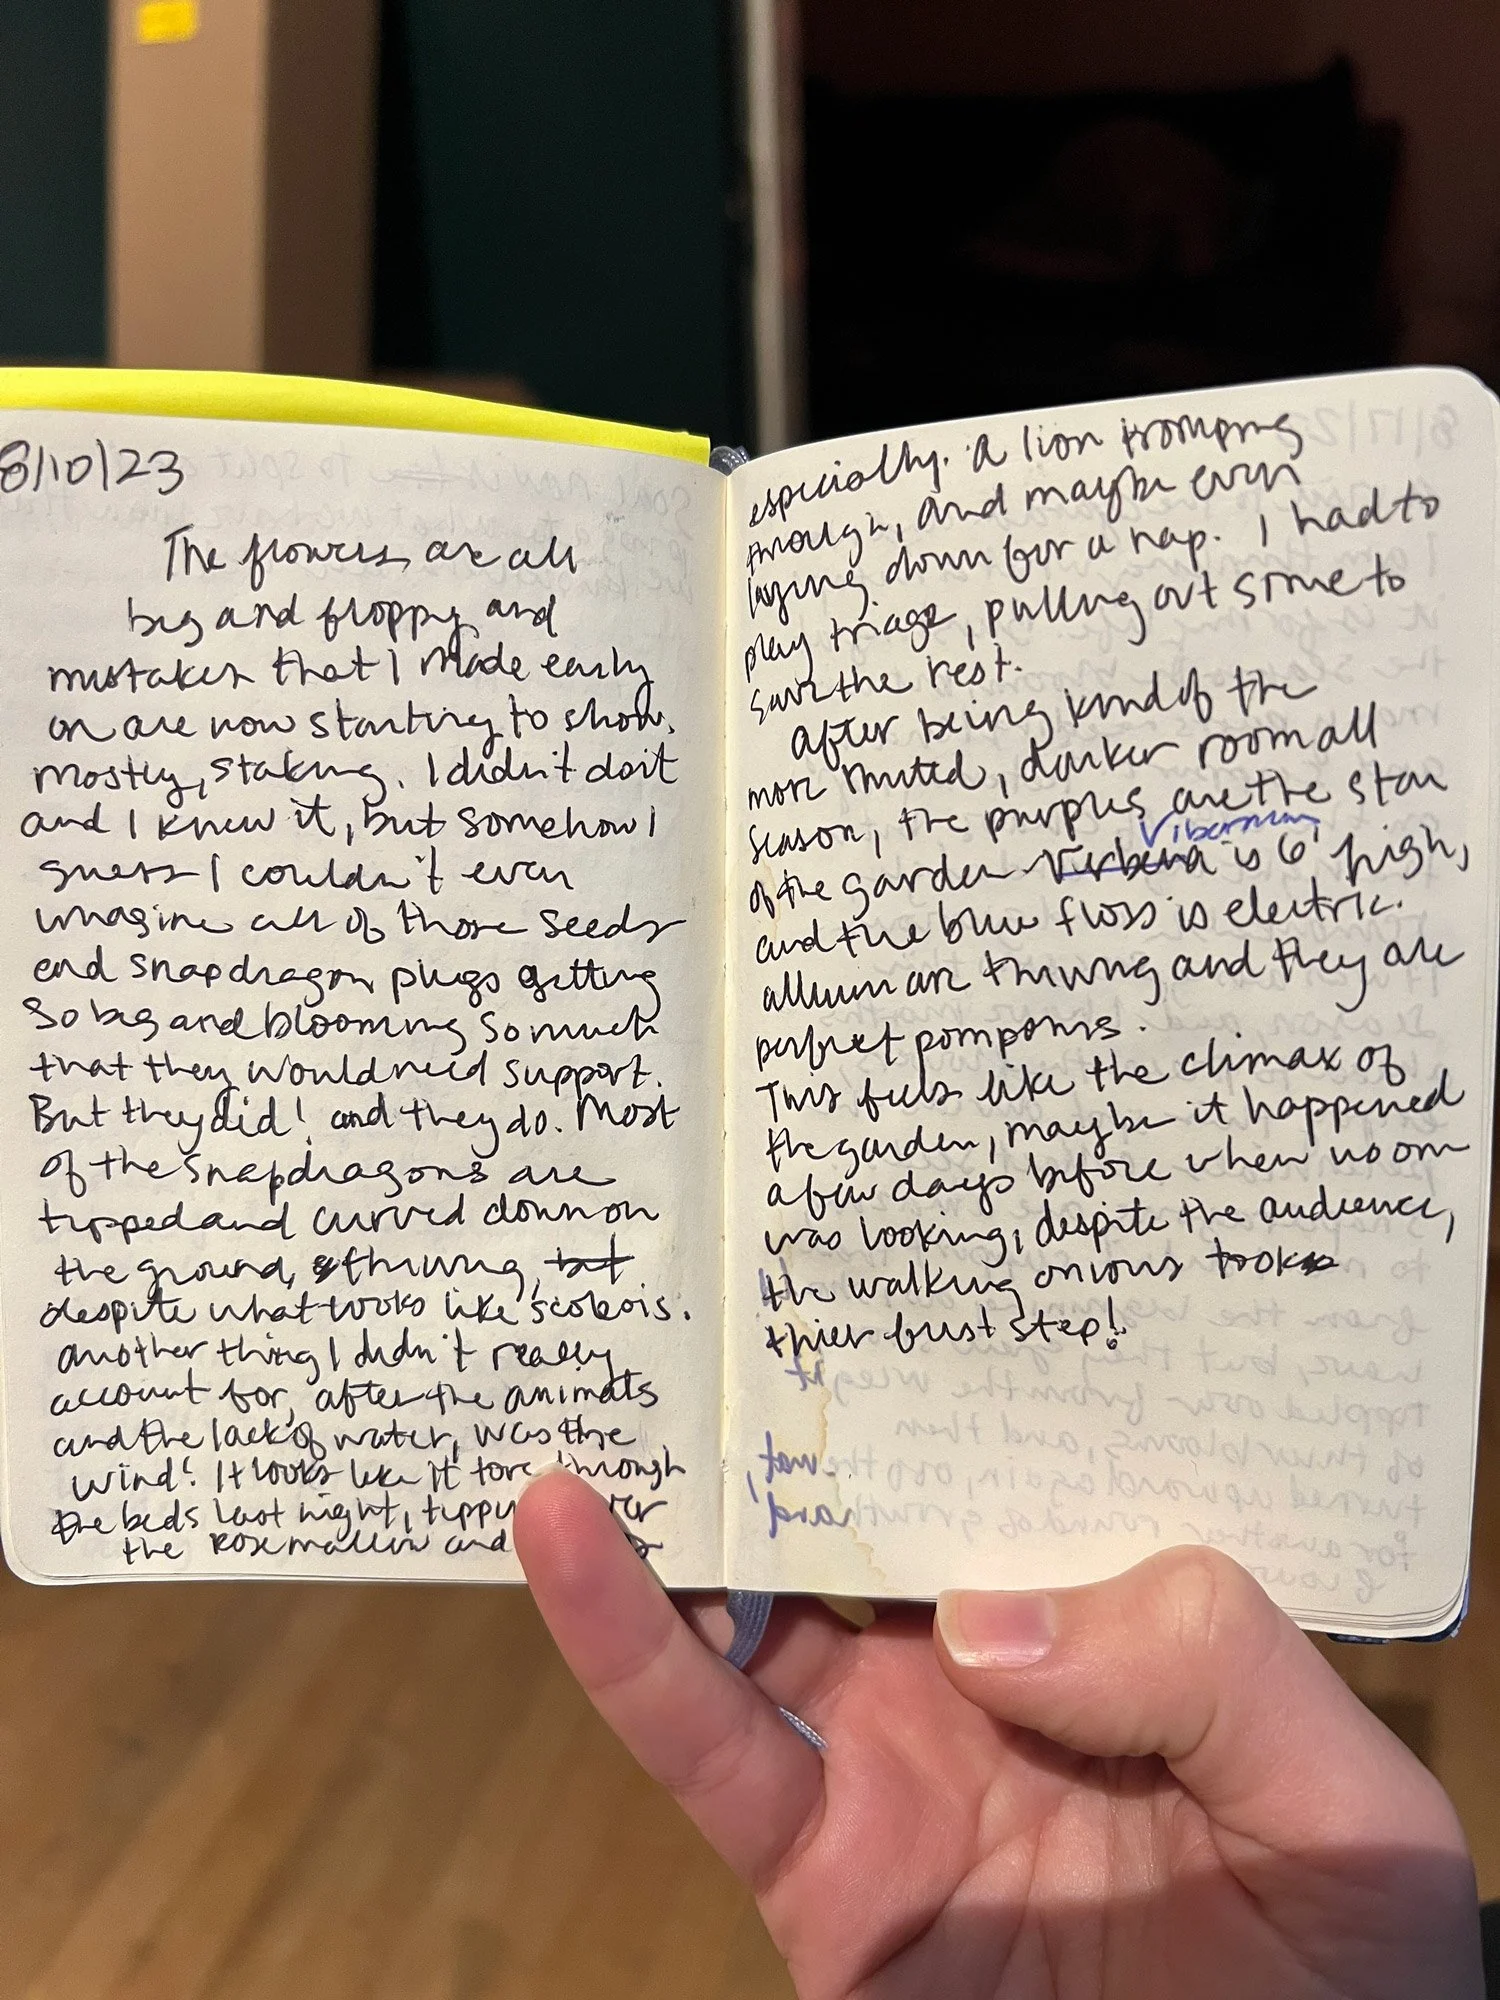 8/10/23
The flowers are all
big and floppy and
mistakes that I made early
on are now starting to show.
Mostly, staking. I didn't do it
and I knew it, but somehow I
guess I couldn't even
imagine all of those seeds
and snapdragon plugs getting
so big and blooming so much
that they would need support.
But they did! and they do. Most
of the snapdragons are
tipped and curved down on
the ground, thriving, but
despite what looks like scoliosis.
another thing I didn't really
account for, after the animals
and the lack of water, was the
wind! It looks like it tore through
the beds last night,
the rosemallow and
especially. A lion tromping
through, and maybe even
laying down for a nap. I had to
play triage, pulling out some to
save the rest.
after being kind of the
more muted, darker room all
season, the purples are the star
Vibernum
of the garden - Verbena is 6' high,
and the blue floss is electric.
allium are thriving and they are
perfect pompoms.
This feels like the climax of
the garden, maybe it happened
a few days before when no one
was looking, despite the audience,
the walking onions took
thier first step!